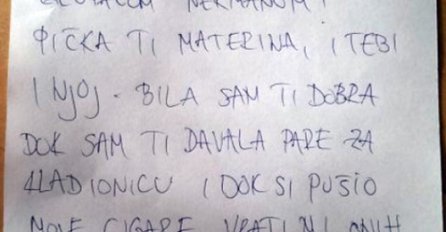 NERMANOM!
PIČKA TI MATERINA, I TEBI
I NJOJ. BILA SAM TI DOBRA
DOK SAM TI DAVALA PARE ZA
KLADIONICU I DOK SI PUŠIO
MOJE CIGARE. VRATI MI ONIH